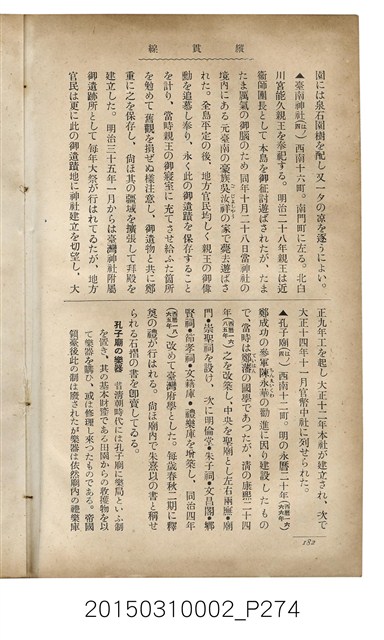 縱貫線
園には泉石園樹を配し、又一夕の涼を逐うによい。
▲臺南神社 西南十六町。南門町に在る。北白
川宮能久親王を奉祀する。明治二十八年親王は近
衞師團長として本島を御征討遊ばされたが、たま
たま瘴氣の御腦のため同年十月二十八日當神社の
境內にある元臺南の豪族吳汝祥の家で薨去遊ばさ
れた。全島平定の後、地方官民均しく親王の御偉
動を追慕し奉り、永く此の御遺蹟を保存すること
を計り、當時親王の御寢室に充てさせ給ふた箇所
を勉めて舊觀を損ぜぬ樣注意し、御遺物と共に鄭
重に之を保存し、尙ほ其の疆域を擴張して拜殿を
建立した。明治三十五年一月からは臺灣神社附屬
御遺跡所として每年大祭が行はれてゐたが、地方
官民は更に此の御遺蹟地に神社建立を切望し、大
正九年工を起し大正十二年本社が建立され、次で
大正十四年十一月官幣中社に列せられた。
▲孔子廟 西南十二町。明の永曆二十年
鄭成功の參軍陳永華の勸進に因り建設したもの
で、當時は鄭藩の國學であつたが、淸の康熙二十四
年 之を改築し、中央を聖廟とし左右兩廡•廟
門•崇聖祠を設け、次に明倫堂•朱子祠•文昌閣•鄕
賢祠•節孝祠•文藉庫•禮樂庫を增築し、同治四年
改めて臺灣府學とした。每歲春秋二期に釋
奠の禮が行はれる。尙ほ廟內で朱熹以の書と稱せ
られる石摺の書を卽賣してゐる。
孔子廟の樂器 昔淸朝時代には孔子廟に樂局といふ制
を置き、其の基本財產である田園からの收穫物を以
て樂器を購ひ、或は修理し來つたものである。帝國
領臺後此の制は廢されたが樂器は依然廟內の禮樂庫
182
20150310002_P274